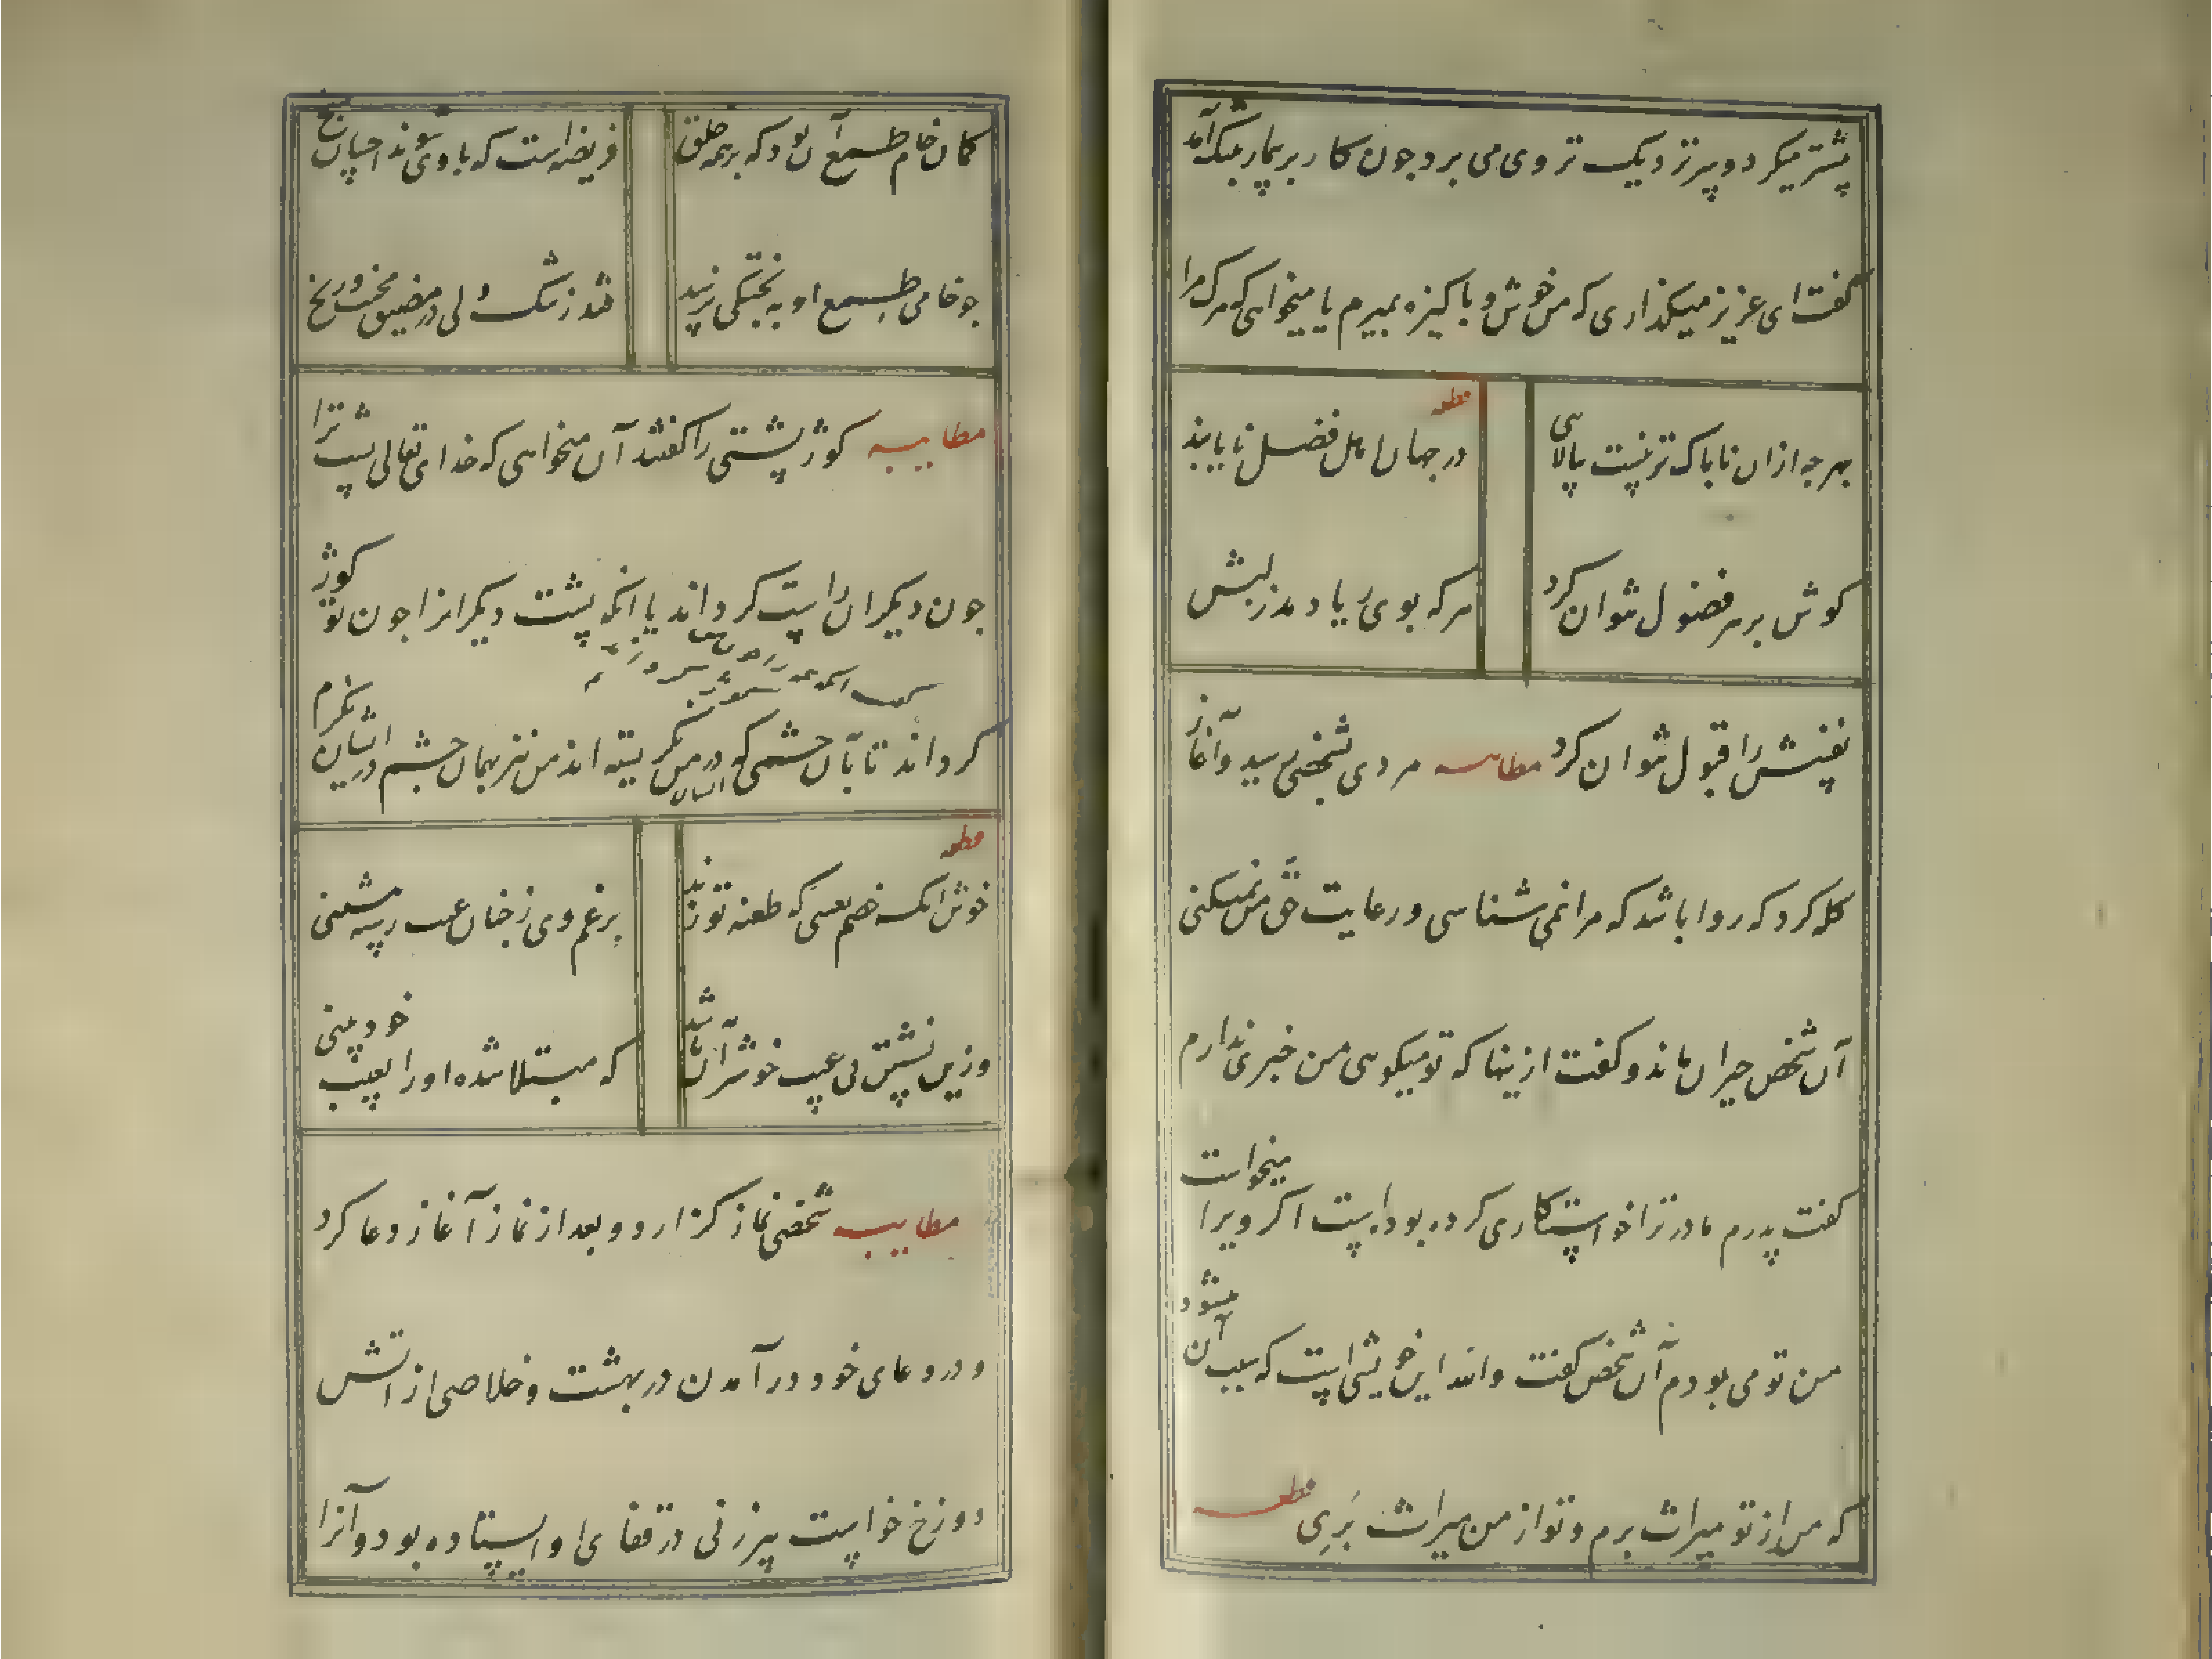 پشتر میکرد و پیرتزدیک تر وی می برد جون کار بر بیمار بتنک آمد
کفت ای عزیز میکذاری که من خوش و باکیزه بمیرم یا میخواهی که مرک مرا
بهر جه ازان ناباک تر نیست پالائی
قطعه
در جهان اهل فضل نایابند
کوش بر هر فضول نتوان کرد
هر که بوی ریا دمد ز لبش
نفسش را قبول نتوان کرد مطایبه مردی بشخصی رسید و آغاز
کله کرد که روا باشد که مرا نمی شناسی و رعایت حق من نمیکنی
آن شخص حیران ماند و کفت ازینها که تو میکوئی من خبری ندارم
کفت پدرم مادر ترا خواستکاری کرده بوده است اکر ویرا میخواست
من تو می بودم آن شخص کفت والله این خویشی است که بسبب آن میشود
که من از تو میراث برم و تو از من میراث بری قطعه
کمان خام طمع آن بود که بر همه خلق
فریضه است که با وی شوند احسان سنج
جو خامی طمع او به پختکی نرسید
فتد ز شک ولی در مضیق محنت و رنج
مطایبه کوژ پشتی را کفتند آن میخواهی که خدای تعالی پشت ترا
جون دیکران راست کرداند یا انکه پشت دیکرانرا جون تو کوژ
کرداند تا بآن جشمی که ایشان در من نکریسته اند من نیز بهمان جشم در ایشان نکرم
قطعه
خوش انکه خصم بعیبی که طعنه تو زند
برغم وی ز جنان عیب رسته بنشینی
وزین نشستن بی عیب خوشتر آن باشد
که مبتلا شده او را بعیب خود بینی
مطایبه شخصی نماز کزارد و بعد از نماز آغاز دعا کرد
و در دعای خود در آمدن در بهشت و خلاصی از آتش
دوزخ خواست پیرزنی در قفای او ایستاده بود و آنرا